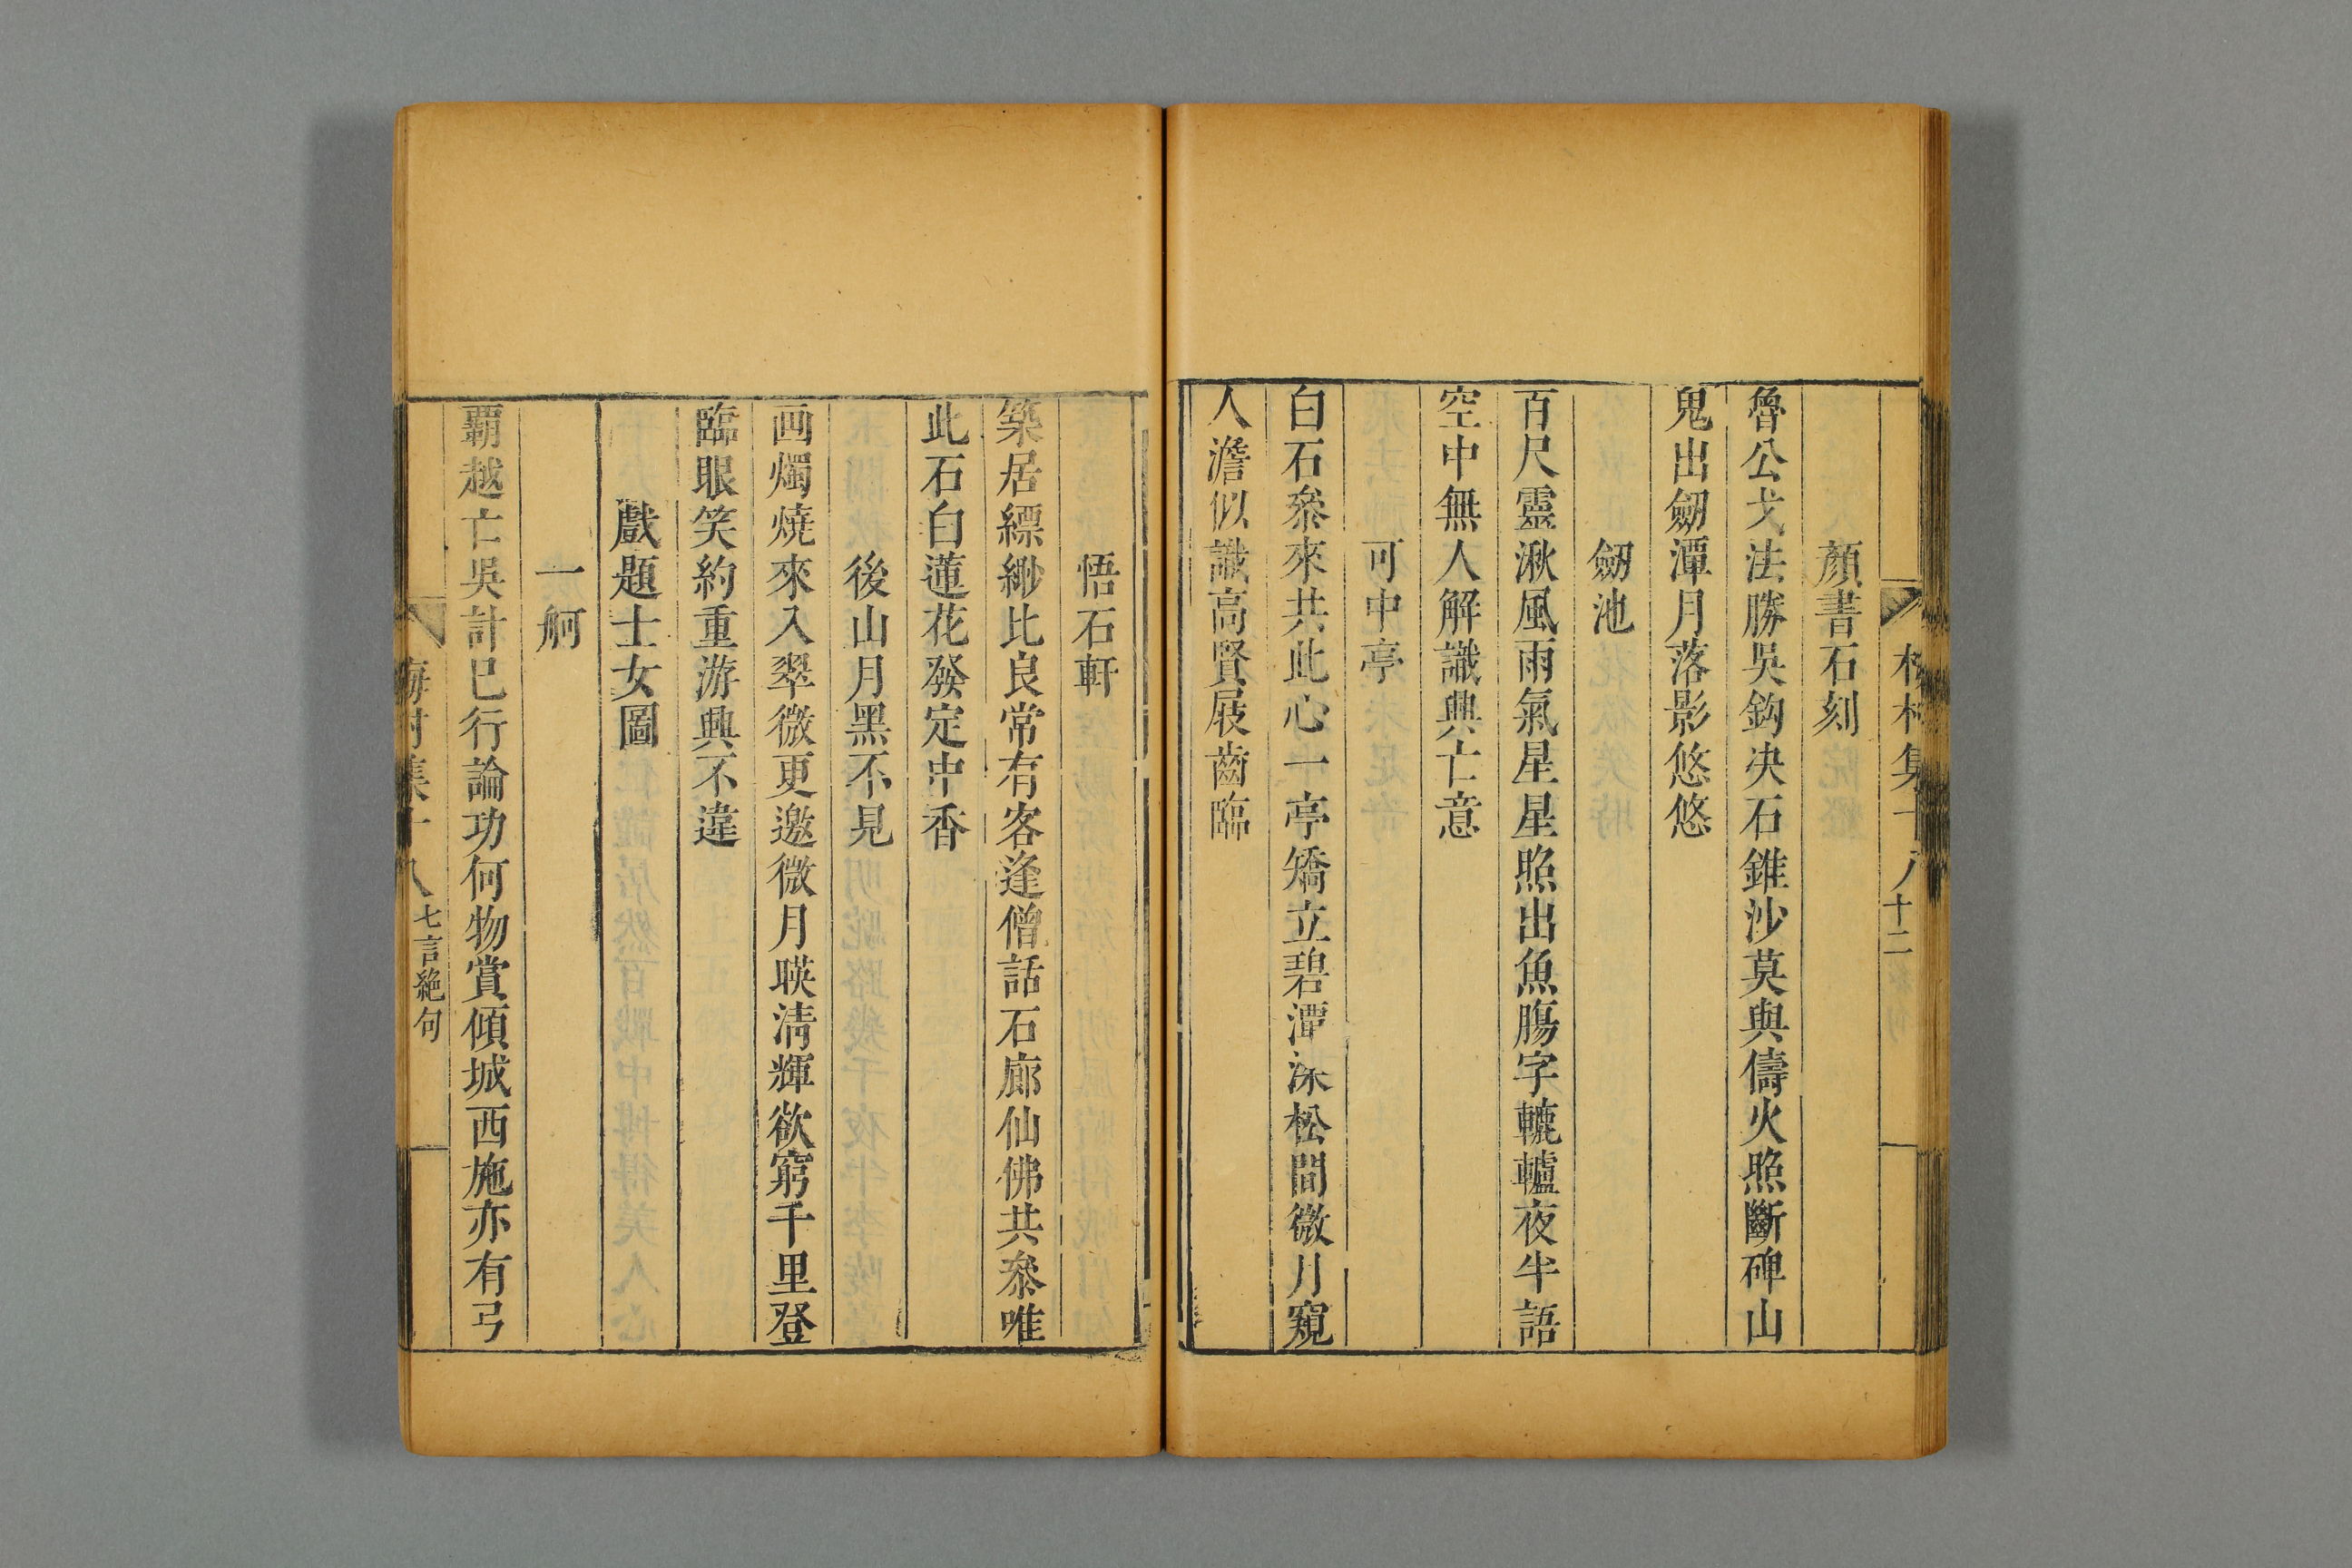 顏書石刻
魯公戈法勝吳鈎决石錐沙莫與儔火照斷碑山
鬼出劒潭月落影悠悠
劒池
百尺靈湫風雨氣星星照出魚膓字轆轤夜半語
空中無人解識興亡意
可中亭
白石叅來共此心一亭矯立碧潭深松間微月窺
人澹似識高賢屐齒臨
悟石軒
築居縹緲比良常有客逢僧話石廊仙佛共叅唯
此石白蓮花發定中香
後山月黑不見
画燭燒來入翠微更邀微月暎淸輝欲窮千里登
臨眼笑約重游興不違
戲題士女圖
一舸
覇越亡吳計已行論功何物賞傾城西施亦有弓
梅村集十八
十二
梅村集十八
七言絶句